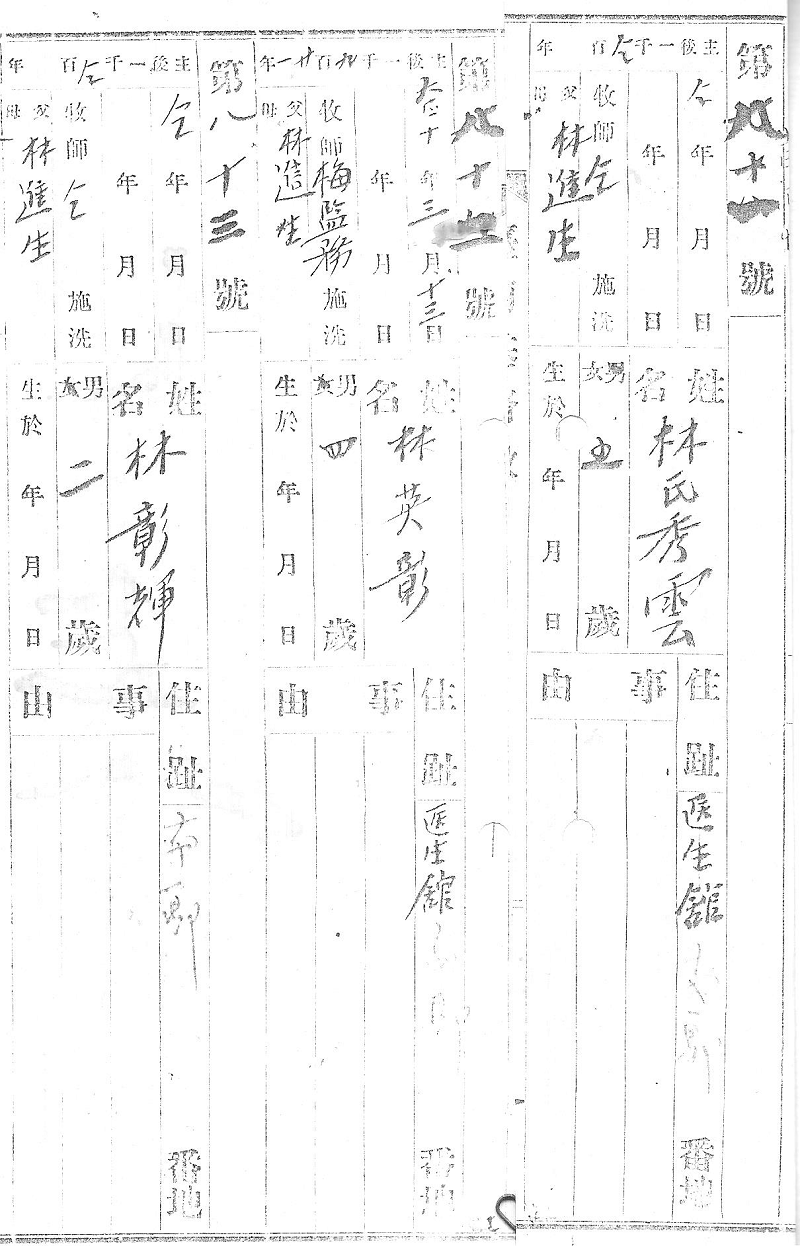 主後一千仝百年
第八十
號
仝年月日
年月日
牧師仝施洗
父母林進生
姓名林氏秀雲
男女五歲
生於年月日
住址医生館
番地
事由
主後一千九百廿一年
第八十
號
大正十年三月十三日
年月日
牧師梅監務施洗
父母林進生
姓名林英彰
男女四歲
生於年月日
住址医生館
番地
事由
主後一千仝百年
第八十三號
仝年月日
年月日
牧師仝施洗
父母林進生
姓名林彰輝
男女二歲
生於年月日
住址
番地
事由